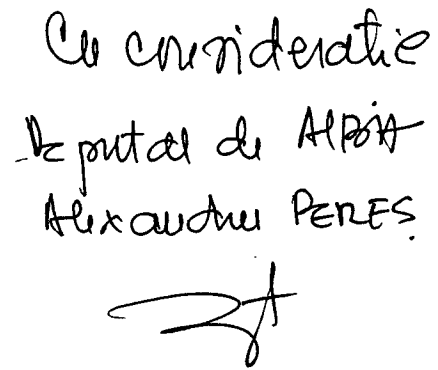 Cu consideratie
Deputat de AlBA
Alexandru PEREȘ